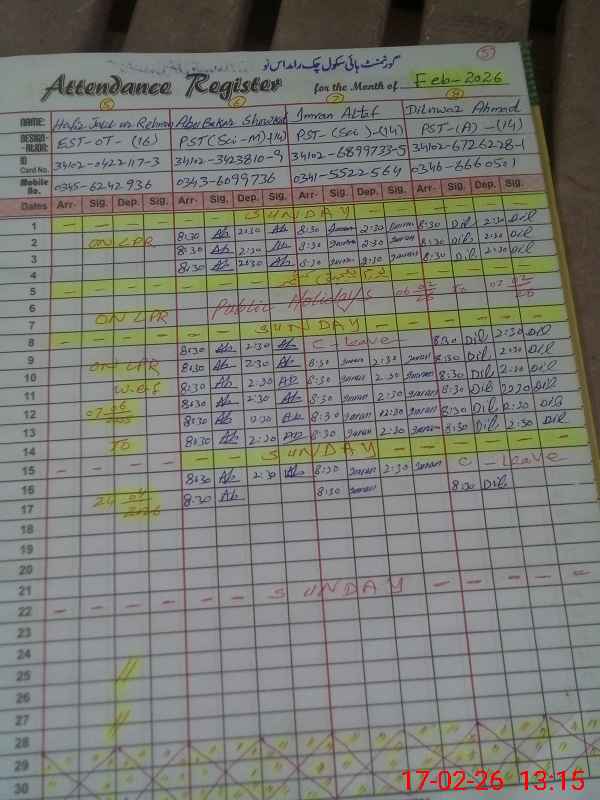 5
گورنمنٹ ہائی سکول چک
Attendance Register for the Month of Feb-2026
5 6 7 8
NAME: Imran Altaf Dilawaz Ahmad
DESIGNATION: EST-OT- (16) PST(Sci-M)(14) PST-(Sci)-(14) PST-(A)-(14)
ID Card No. 34102-0422117-3 34102-3423810-9 34102-6899733-5 34102-6726228-1
Mobile No. 0345-6242936 0343-6099736 0341-5522564 0346-6660501
Dates Arr- Sig. Dep. Sig. Arr- Sig. Dep. Sig. Arr- Sig. Dep. Sig. Arr- Sig. Dep. Sig.
1 SUNDAY
2 ON LPR 8:30 Ab 2:30 Ab 8:30 Imran 2:30 Imran 8:30 Dil 2:30 Dil
3 8:30 Ab 2:30 Ab 8:30 Imran 2:30 Imran 8:30 Dil 2:30 Dil
4 8:30 Ab 2:30 Ab 8:30 Imran 2:30 Imran 8:30 Dil 2:30 Dil
5
6 Public Holidays 06 02/26 To 07 02/26
7 ON LPR
8 SUNDAY
9 8:30 Ab 2:30 Ab C-Leave 8:30 Dil 2:30 Dil
10 ON LPR 8:30 Ab 2:30 Ab 8:30 Imran 2:30 Imran 8:30 Dil 2:30 Dil
11 W.E.F 8:30 Ab 2:30 Ab 8:30 Imran 2:30 Imran 8:30 Dil 2:30 Dil
12 8:30 Ab 2:30 Ab 8:30 Imran 2:30 Imran 8:30 Dil 12:30 Dil
13 8:30 Ab 12:30 Ab 8:30 Imran 12:30 Imran 8:30 Dil 2:30 Dil
14 To 8:30 Ab 2:30 Ab 8:30 Imran 2:30 Imran 8:30 Dil 2:30 Dil
15 SUNDAY
16 8:30 Ab 2:30 Ab 8:30 Imran 2:30 Imran C-Leave
17 8:30 Ab 8:30 Imran 8:30 Dil
18
19
20
21
22 SUNDAY
23
24
25
26
27
28
29
30
17-02-26 13:15